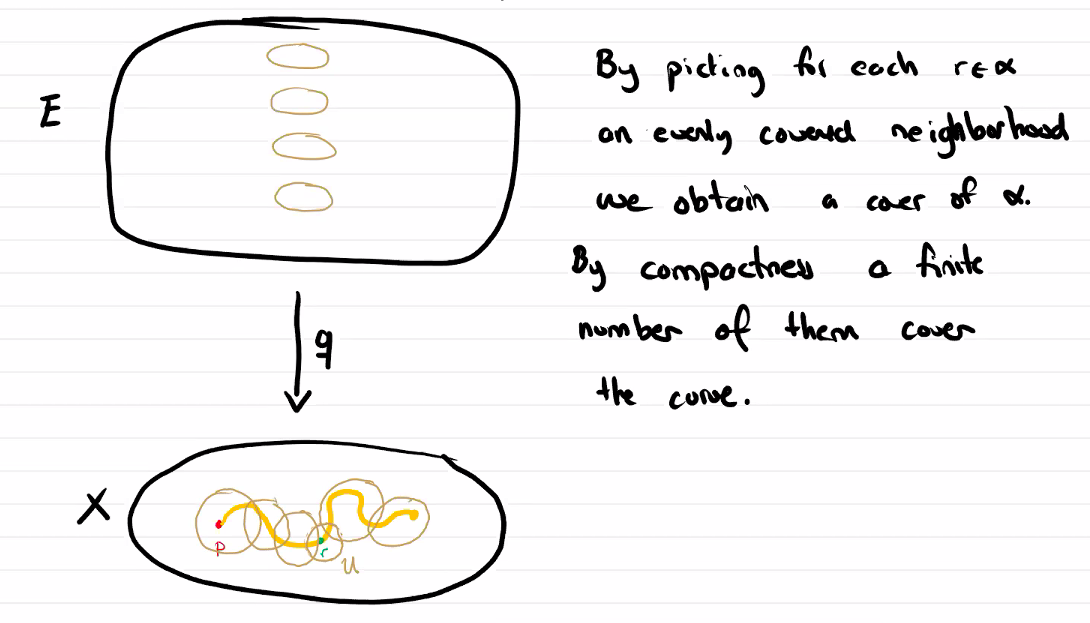 By picting for each r∈α
E
an evenly covered neighborhood
we obtain a cover of α.
By compactness a finite
number of them cover
q
the curve.
X
p
r
U